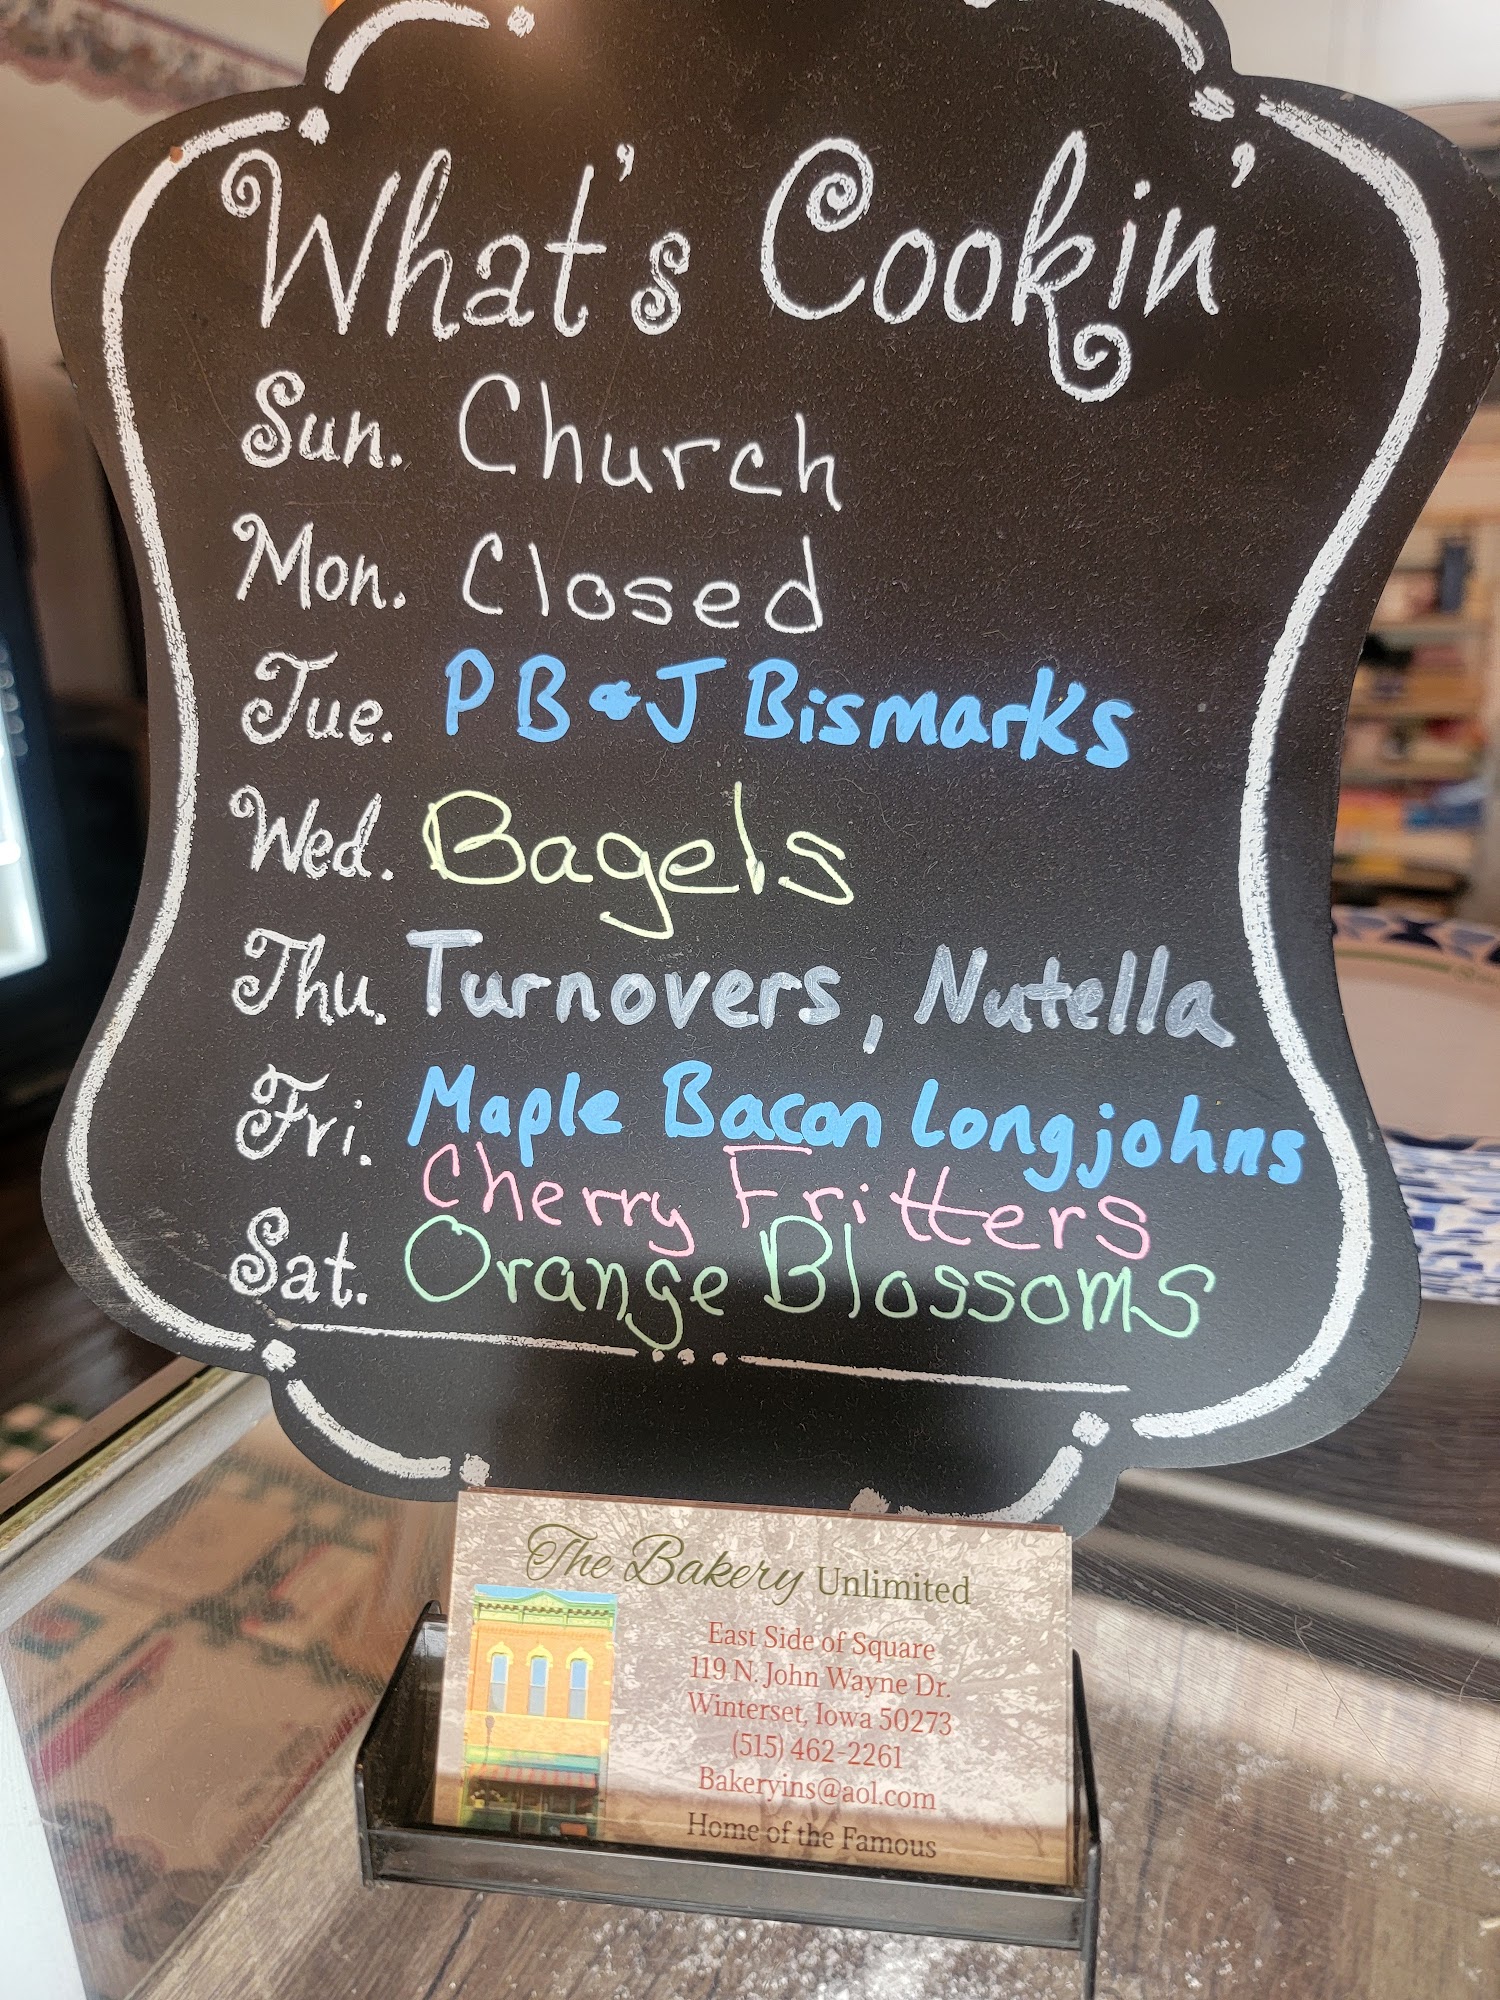 What's Cookin'
Sun. Church
Mon. Closed
Tue. PB & J Bismarks
Wed. Bagels
Thu. Turnovers, Nutella
Fri. Maple Bacon Longjohns
Cherry Fritters
Sat. Orange Blossoms
The Bakery Unlimited
East Side of Square
119 N. John Wayne Dr.
Winterset, Iowa 50273
(515) 462-2261
Bakeryins@aol.com
Home of the Famous